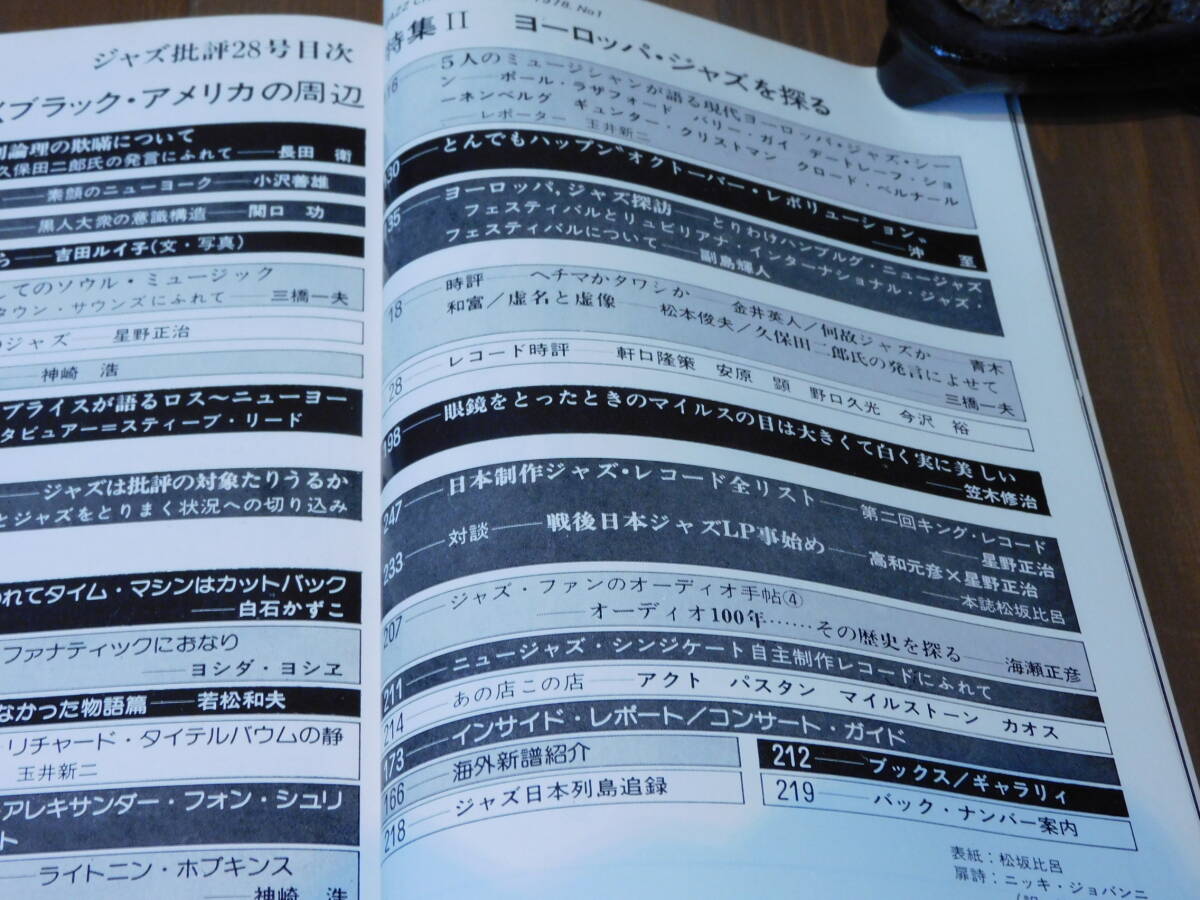 ジャズ批評28号目次
ブラック・アメリカの周辺
論理の欺瞞について
久保田二郎氏の発言にふれて──長田 衛
──素顔のニューヨーク──小沢善雄
──黒人大衆の意識構造──関口 功
吉田ルイ子(文・写真)
してのソウル・ミュージック
タウン・サウンズにふれて──三橋一夫
のジャズ 星野正治
神崎 浩
プライスが語るロス〜ニューヨー
タビュアー=スティーブ・リード
──ジャズは批評の対象たりうるか
とジャズをとりまく状況への切り込み
われてタイム・マシンはカットバック
──白石かずこ
ファナティックにおなり
──ヨシダ・ヨシヱ
なかった物語篇──若松和夫
リチャード・タイテルバウムの静
玉井新二
アレキサンダー・フォン・シュリ
ト
──ライトニン・ホプキンス
──神崎 浩
1978. No1
特集II ヨーロッパ・ジャズを探る
16 5人のミュージシャンが語る現代ヨーロッパ・ジャズ・シー
ン──ポール・ラザフォード バリー・ガイ デートレーフ・ショ
ーネンベルグ ギュンター・クリストマン クロード・ベルナール
──レポーター 玉井新二
30──とんでもハップン“オクトーバー・レボリューション”
──沖 至
35──ヨーロッパ,ジャズ探訪──とりわけハンブルグ・ニュージャズ
フェスティバルとリュビリアナ・インターナショナル・ジャズ・
フェスティバルについて──副島輝人
18──時評──ヘチマかタワシか 金井英人/何故ジャズか 青木
和富/虚名と虚像──松本俊夫/久保田二郎氏の発言によせて
三橋一夫
28──レコード時評 軒口隆策 安原 顕 野口久光 今沢 裕
198──眼鏡をとったときのマイルスの目は大きくて白く実に美しい
──笠木修治
247──日本制作ジャズ・レコード全リスト──第二回キング・レコード
──星野正治
233──対談──戦後日本ジャズLP事始め──高和元彦×星野正治
──本誌松坂比呂
207──ジャズ・ファンのオーディオ手帖④
──オーディオ100年……その歴史を探る──海瀬正彦
211──ニュージャズ・シンジケート自主制作レコードにふれて
214──あの店この店 アクト パスタン マイルストーン カオス
173──インサイド・レポート/コンサート・ガイド
166──海外新譜紹介
212──ブックス/ギャラリィ
218──ジャズ日本列島追録
219──バック・ナンバー案内
表紙:松坂比呂
扉詩:ニッキ・ジョバンニ